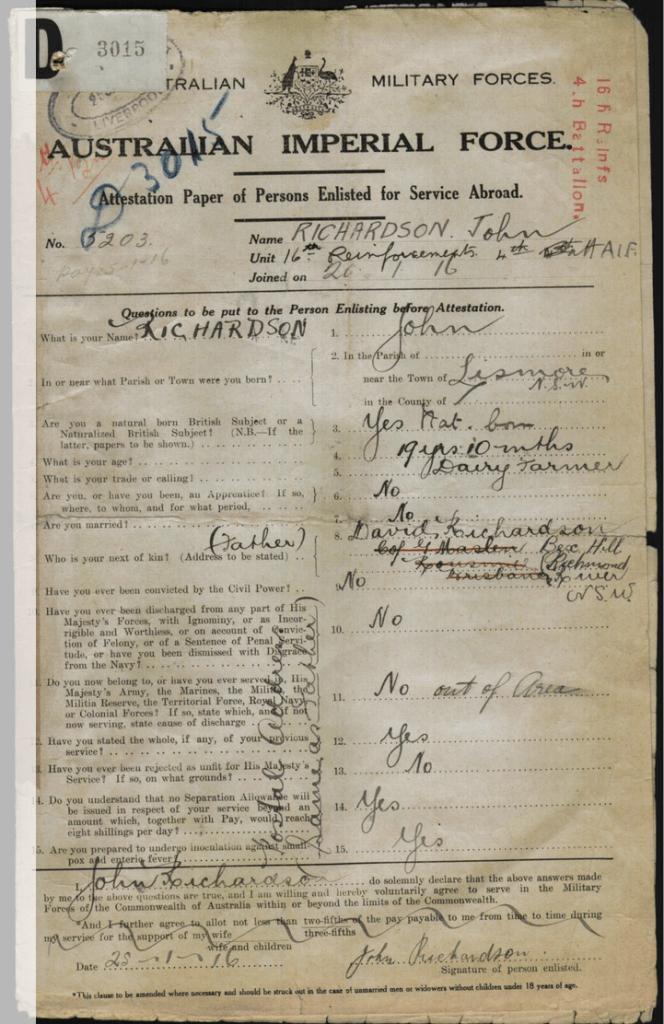 D.
3015
LIVERPOOL
TRALIAN MILITARY FORCES.
16th Reinfs
4.h Battalion.
AUSTRALIAN IMPERIAL FORCE.
D 3015
Attestation Paper of Persons Enlisted for Service Abroad.
No. 5203.
Name RICHARDSON. John
Unit 16th Reinforcements. 4th Batt A I F.
Joined on 26 1 16
Questions to be put to the Person Enlisting before Attestation.
What is your Name? RICHARDSON 1. John
In or near what Parish or Town were you born? 2. In the Parish of in or
near the Town of Lismore
N.S.W.
in the County of
Are you a natural born British Subject or a
Naturalized British Subject? (N.B.—If the
latter, papers to be shown.) 3. Yes Nat. born
What is your age? 4. 19 yrs 10 mths
What is your trade or calling? 5. Dairy Farmer
Are you, or have you been, an Apprentice? If so,
where, to whom, and for what period, 6. No
Are you married? 7. No
Who is your next of kin? (Address to be stated) (Father) 8. David Richardson
Bex Hill
Richmond
River
N.S.W.
Have you ever been convicted by the Civil Power? No
Have you ever been discharged from any part of His
Majesty's Forces, with Ignominy, or as Incor-
rigible and Worthless, or on account of Convic-
tion of Felony, or of a Sentence of Penal Servi-
tude, or have you been dismissed with Disgrace
from the Navy? 10. No
Do you now belong to, or have you ever served in, His
Majesty's Army, the Marines, the Militia, the
Militia Reserve, the Territorial Force, Royal Navy
or Colonial Forces? If so, state which, and if not
now serving, state cause of discharge 11. No out of Area
Have you stated the whole, if any, of your previous
service? 12. Yes
Have you ever been rejected as unfit for His Majesty's
Service? If so, on what grounds? 13. No
14. Do you understand that no Separation Allowance will
be issued in respect of your service beyond an
amount which, together with Pay, would reach
eight shillings per day? 14. Yes
15. Are you prepared to undergo inoculation against small
pox and enteric fever 15. Yes
Postal Address
Same as Father
I, John Richardson do solemnly declare that the above answers made
by me to the above questions are true, and I am willing and hereby voluntarily agree to serve in the Military
Forces of the Commonwealth of Australia within or beyond the limits of the Commonwealth.
*And I further agree to allot not less than two-fifths of the pay payable to me from time to time during
three-fifths
my service for the support of my wife
wife and children
Date 25-1-16 John Richardson
Signature of person enlisted.
*This clause to be amended where necessary and should be struck out in the case of unmarried men or widowers without children under 18 years of age.